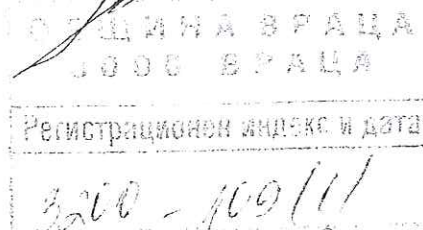 ОБЩИНА ВРАЦА
3000 ВРАЦА
Регистрационен индекс и дата
3200 - 109/1/